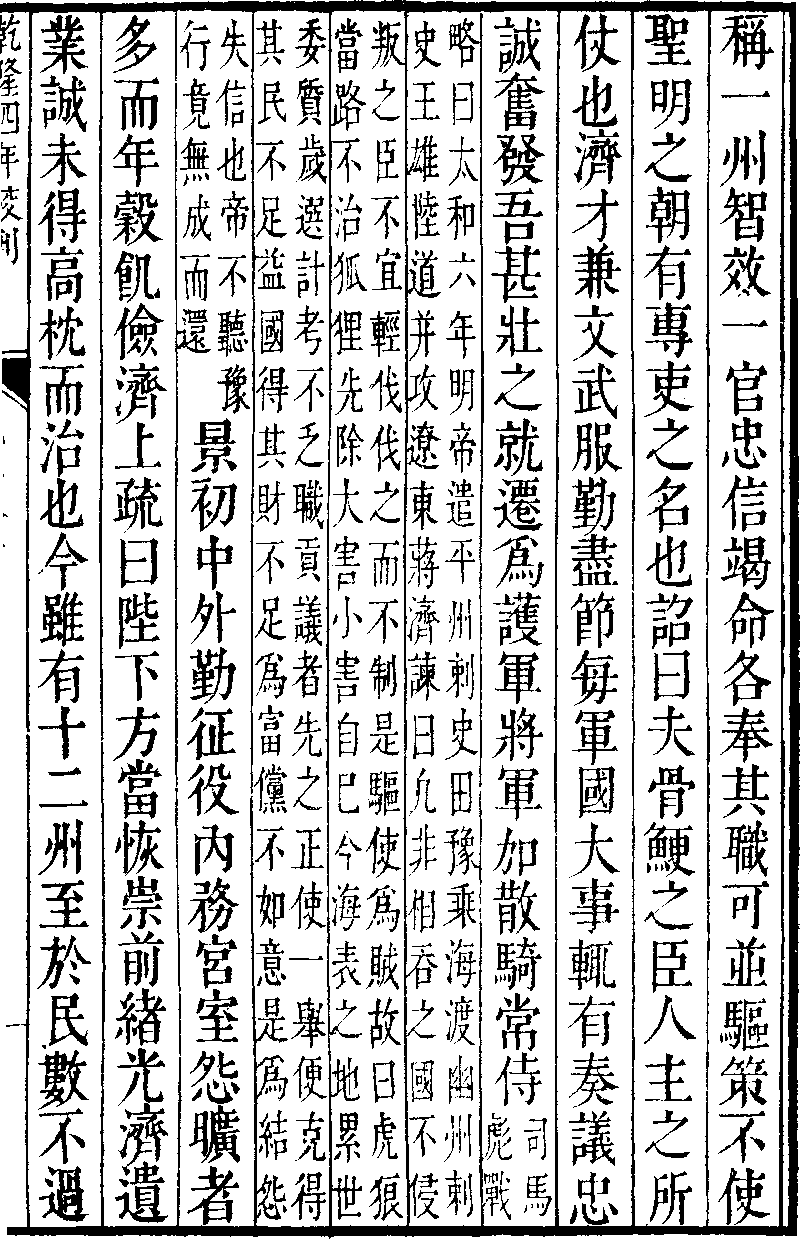 稱一州智效一官忠信竭命各奉其職可並驅策不使
聖明之朝有專吏之名也詔曰夫骨鯁之臣人主之所
仗也濟才兼文武服勤盡節每軍國大事輒有奏議忠
誠奮發吾甚壯之就遷爲護軍將軍加散騎常侍
司馬
彪戰
略曰太和六年明帝遣平州刺史田豫乘海渡幽州刺
史王雄陸道并攻遼東蔣濟諫曰凡非相吞之國不侵
叛之臣不宜輕伐伐之而不制是驅使爲賊故曰虎狼
當路不治狐狸先除大害小害自已今海表之地累世
委質歲選計考不乏職貢議者先之正使一舉便克得
其民不足益國得其財不足爲富儻不如意是爲結怨
失信也帝不聽豫
行竟無成而還
景初中外勤征役內務宮室怨曠者
多而年穀飢儉濟上疏曰陛下方當恢崇前緒光濟遺
業誠未得高枕而治也今雖有十二州至於民數不過
乾隆四年校刊